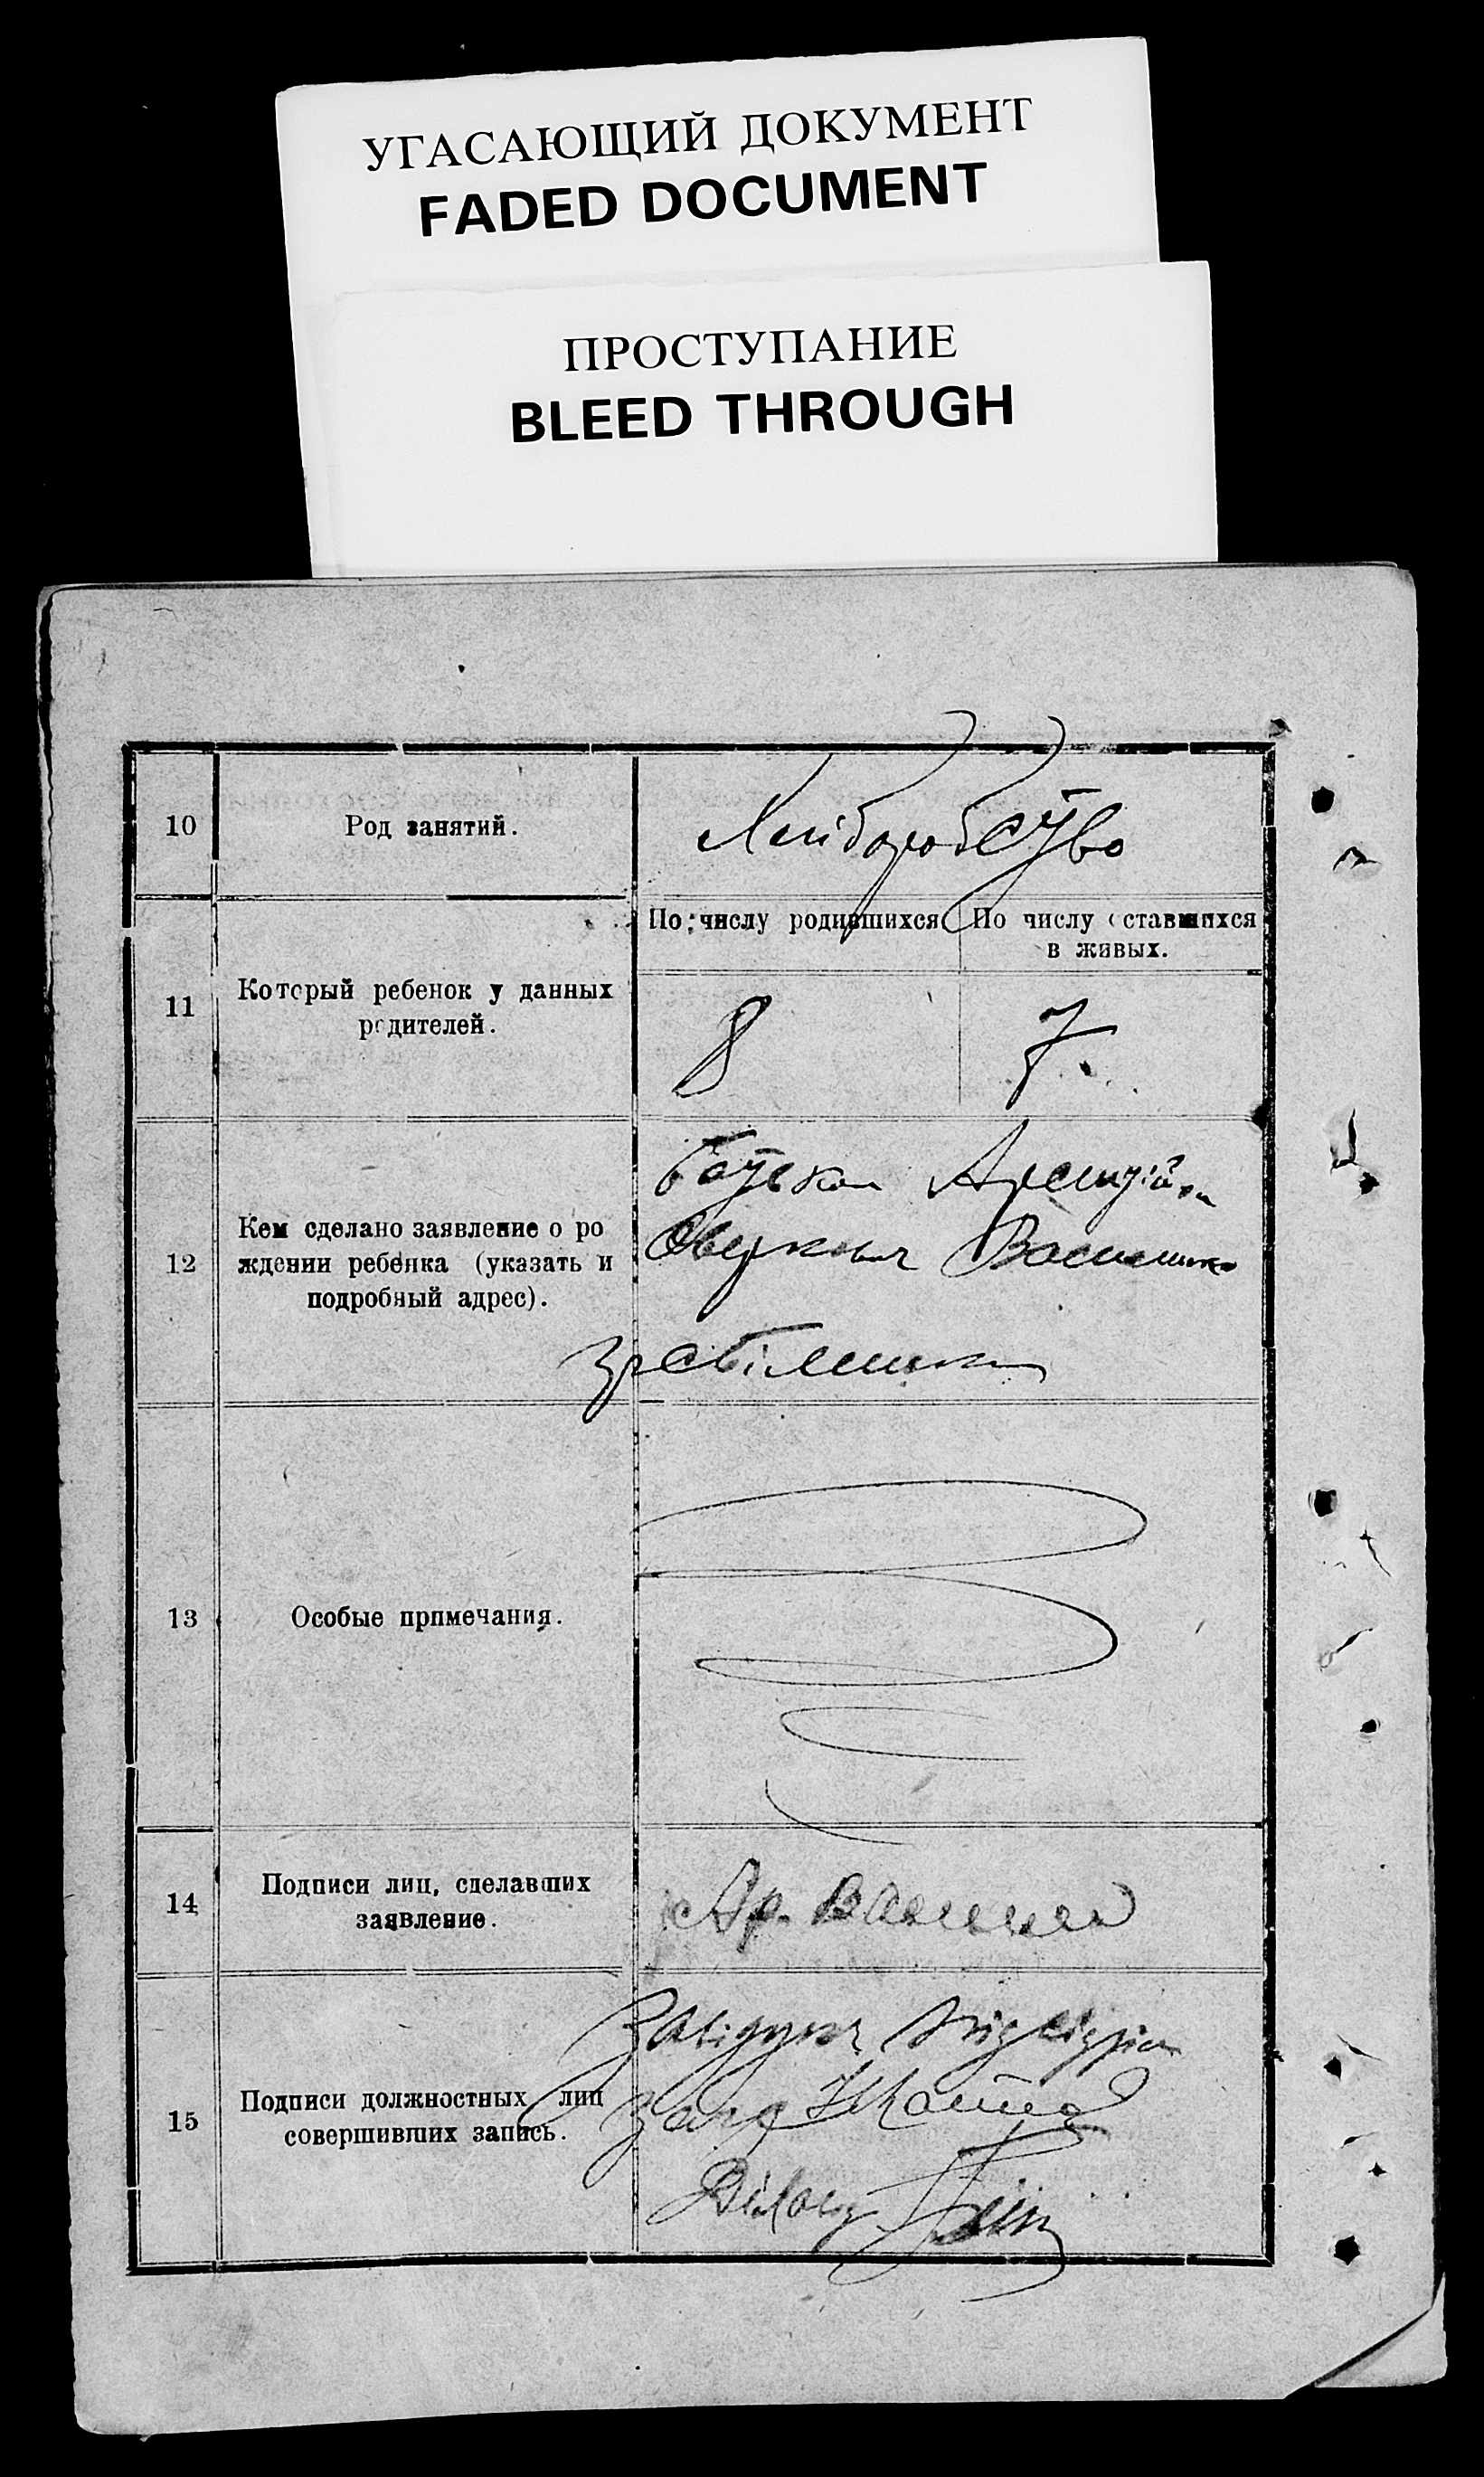 УГАСАЮЩИЙ ДОКУМЕНТ
FADED DOCUMENT
ПРОСТУПАНИЕ
BLEED THROUGH
10
Род занятий.
Хліборобство
11
Который ребенок у данных
родителей.
По числу родившихся
По числу оставшихся
в живых.
8
7
12
Кем сделано заявление о ро
ждении ребенка (указать и
подробный адрес).
батьком
Оверковим
13
Особые примечания.
14
Подписи лиц, сделавших
заявление.
Ар.
15
Подписи должностных лиц
совершивших запись.
Завідуюч.
Діловод